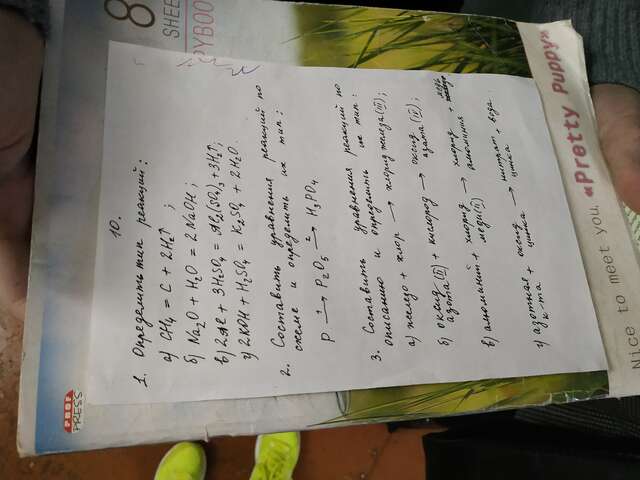 8
SHEE
PYBOO
10.
1. Определить тип реакций:
а) CH₄ = C + 2H₂↑ ;
б) Na₂O + H₂O = 2NaOH;
в) 2Al + 3H₂SO₄ = Al₂(SO₄)₃ + 3H₂↑;
г) 2KOH + H₂SO₄ = K₂SO₄ + 2H₂O.
2. Составить уравнения реакций по
схеме и определить их тип:
P —1→ P₂O₅ —2→ H₃PO₄
3. Составить уравнения реакций по
описанию и определить их тип:
а) железо + хлор → хлорид железа(III);
б) оксид азота(II) + кислород → оксид азота(IV);
в) алюминий + хлорид меди(II) → хлорид алюминия + медь
г) азотная к-та + оксид цинка → нитрат цинка + вода.
«Pretty Puppy»
Nice to meet you.
PROF
PRESS